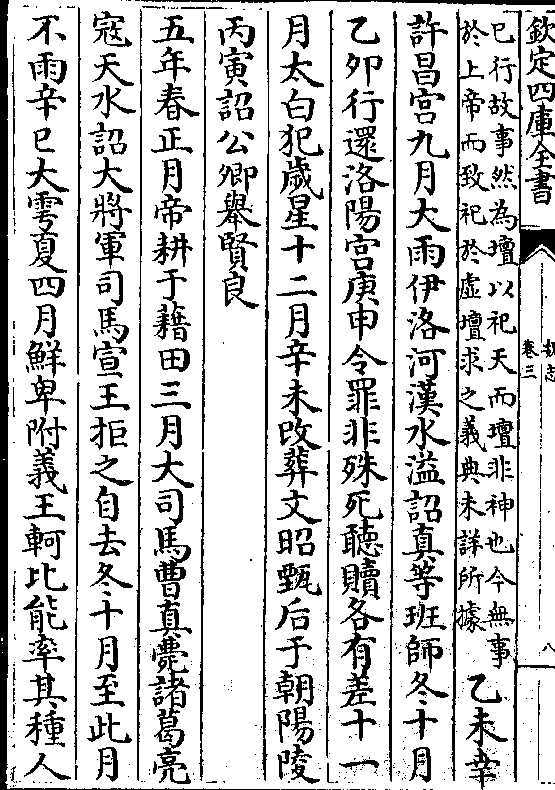 欽定四庫全書
魏志
卷三
八
已行故事然為壇以祀天而壇非神也今無事
於上帝而致祀於虛壇求之義典未詳所據
乙未幸
許昌宮九月大雨伊洛河漢水溢詔真等班師冬十月
乙卯行還洛陽宮庚申令罪非殊死聽贖各有差十一
月太白犯歲星十二月辛未改葬文昭甄后于朝陽陵
丙寅詔公卿舉賢良
五年春正月帝耕于藉田三月大司馬曹真薨諸葛亮
寇天水詔大將軍司馬宣王拒之自去冬十月至此月
不雨辛巳大雩夏四月鮮卑附義王軻比能率其種人